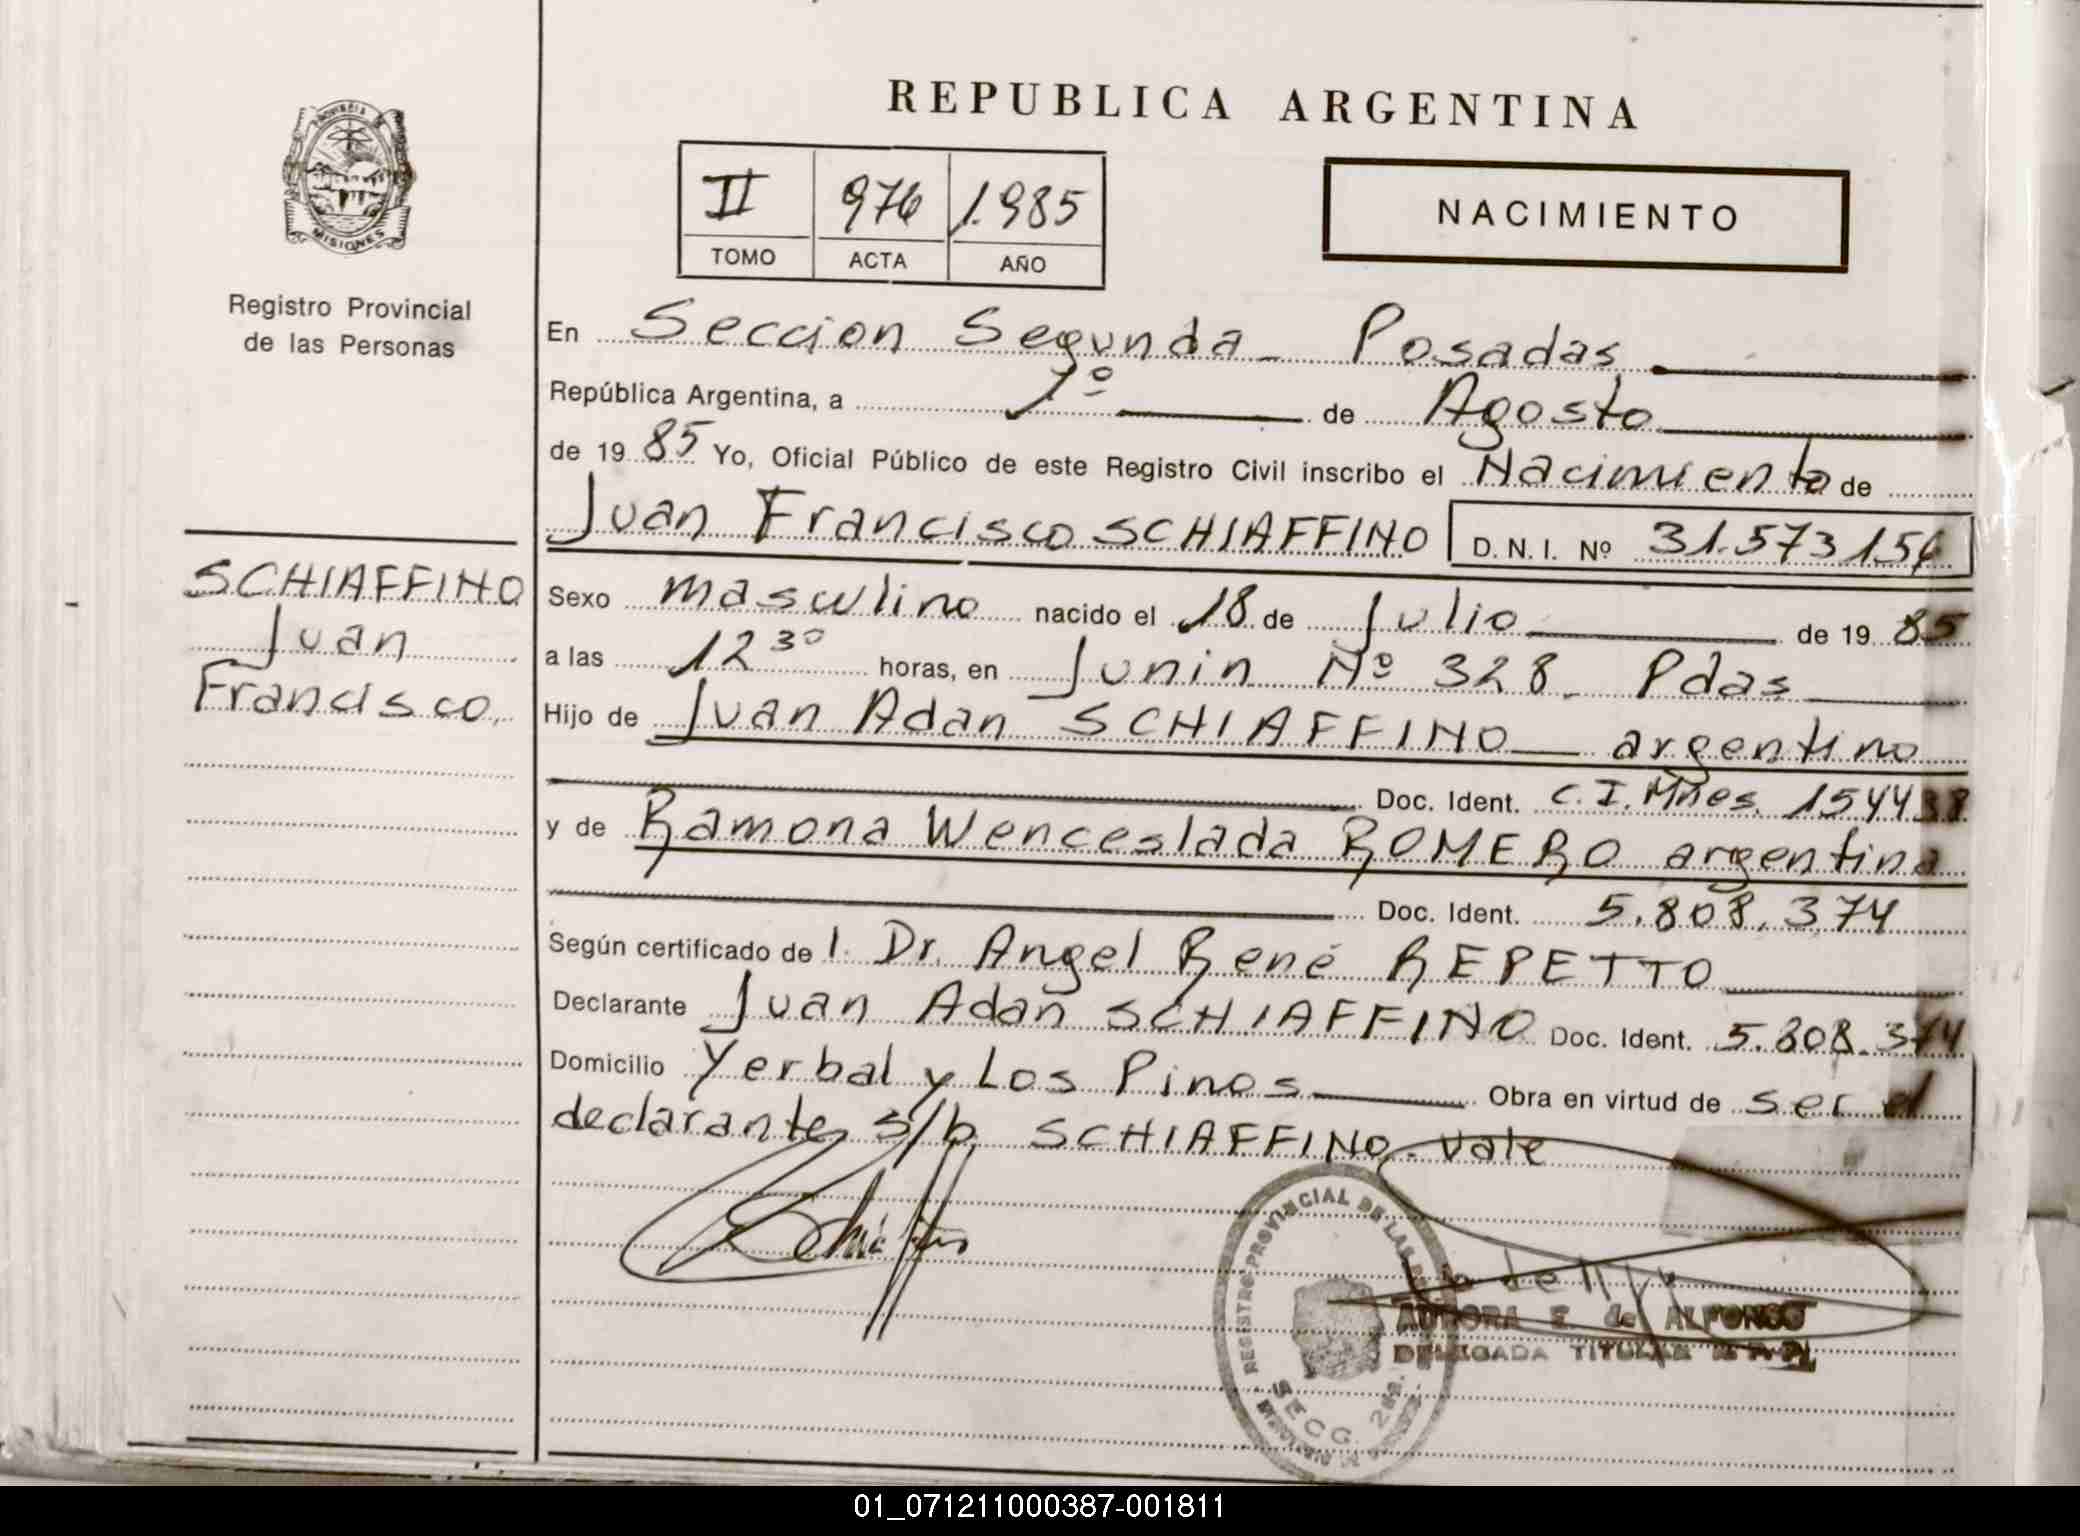 PROVINCIA DE
MISIONES
Registro Provincial
de las Personas
SCHIAFFINO
Juan
Francisco.
REPUBLICA ARGENTINA
II 976 1.985
TOMO ACTA AÑO
NACIMIENTO
En Seccion Segunda - Posadas
República Argentina, a 1º de Agosto
de 19 85 Yo, Oficial Público de este Registro Civil inscribo el Nacimiento de
Juan Francisco SCHIAFFINO D. N. I. Nº 31.573.156
Sexo masculino nacido el 18 de Julio de 19 85
a las 12 30 horas, en Junin Nº 328 - Pdas
Hijo de Juan Adan SCHIAFFINO argentino
Doc. Ident. C.I. Mnes. 154438
y de Ramona Wenceslada ROMERO argentina
Doc. Ident. 5.808.374
Según certificado de l Dr. Angel René REPETTO
Declarante Juan Adan SCHIAFFINO Doc. Ident. 5.808.374
Domicilio Yerbal y Los Pinos Obra en virtud de ser el
declarante s/b SCHIAFFINO. vale
REGISTRO PROVINCIAL DE LAS
SECC. 2da.
AURORA E. de ALFONSO
DELEGADA TITULAR R. P. P.
01_071211000387-001811